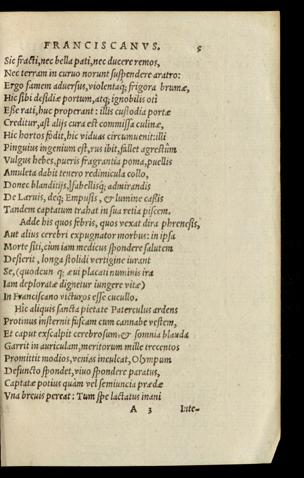 FRANCISCANVS. 5
Sic fracti, nec bella pati, nec ducere remos,
Nec terram in curuo norunt suspendere aratro:
Ergo famem aduersus, violentaq; frigora brumæ,
Hic sibi desidiæ portum, atq; ignobilis oti
Esse rati, huc properant: illis custodia portæ
Creditur, ast alijs cura est commissa culinæ,
Hic hortos fodit, hic viduas circumuenit: illi
Pinguius ingenium est, rus ibit, fallet agrestûm
Vulgus hebes, pueris fragrantia poma, puellis
Amuleta dabit tenero redimicula collo,
Donec blanditijs, fabellisq; admirandis
De Laruis, deq; Empusis, & lumine cassis
Tandem captatum trahat in sua retia piscem.
Adde his quos febris, quos vexat dira phrenesis,
Aut alius cerebri expugnator morbus: in ipsa
Morte siti, cùm iam medicus spondere salutem
Desierit, longa stolidi vertigine iurant
Se, (quodcun q; æui placati numinis ira
Iam deploratæ dignetur iungere vitæ)
In Franciscano victuros esse cucullo.
Hîc aliquis sancta pietate Paterculus ardens
Protinus insternit fuscam cum cannabe vestem,
Et caput exscalpit cerebrosum: & somnia blanda
Garrit in auriculam, meritorum mille trecentos
Promittit modios, venias inculcat, Olympum
Defuncto spondet, viuo spondere paratus,
Captatæ potius quàm vel semiuncia prædæ
Vna breuis pereat: Tum spe lactatus inani
A 3 Inte-